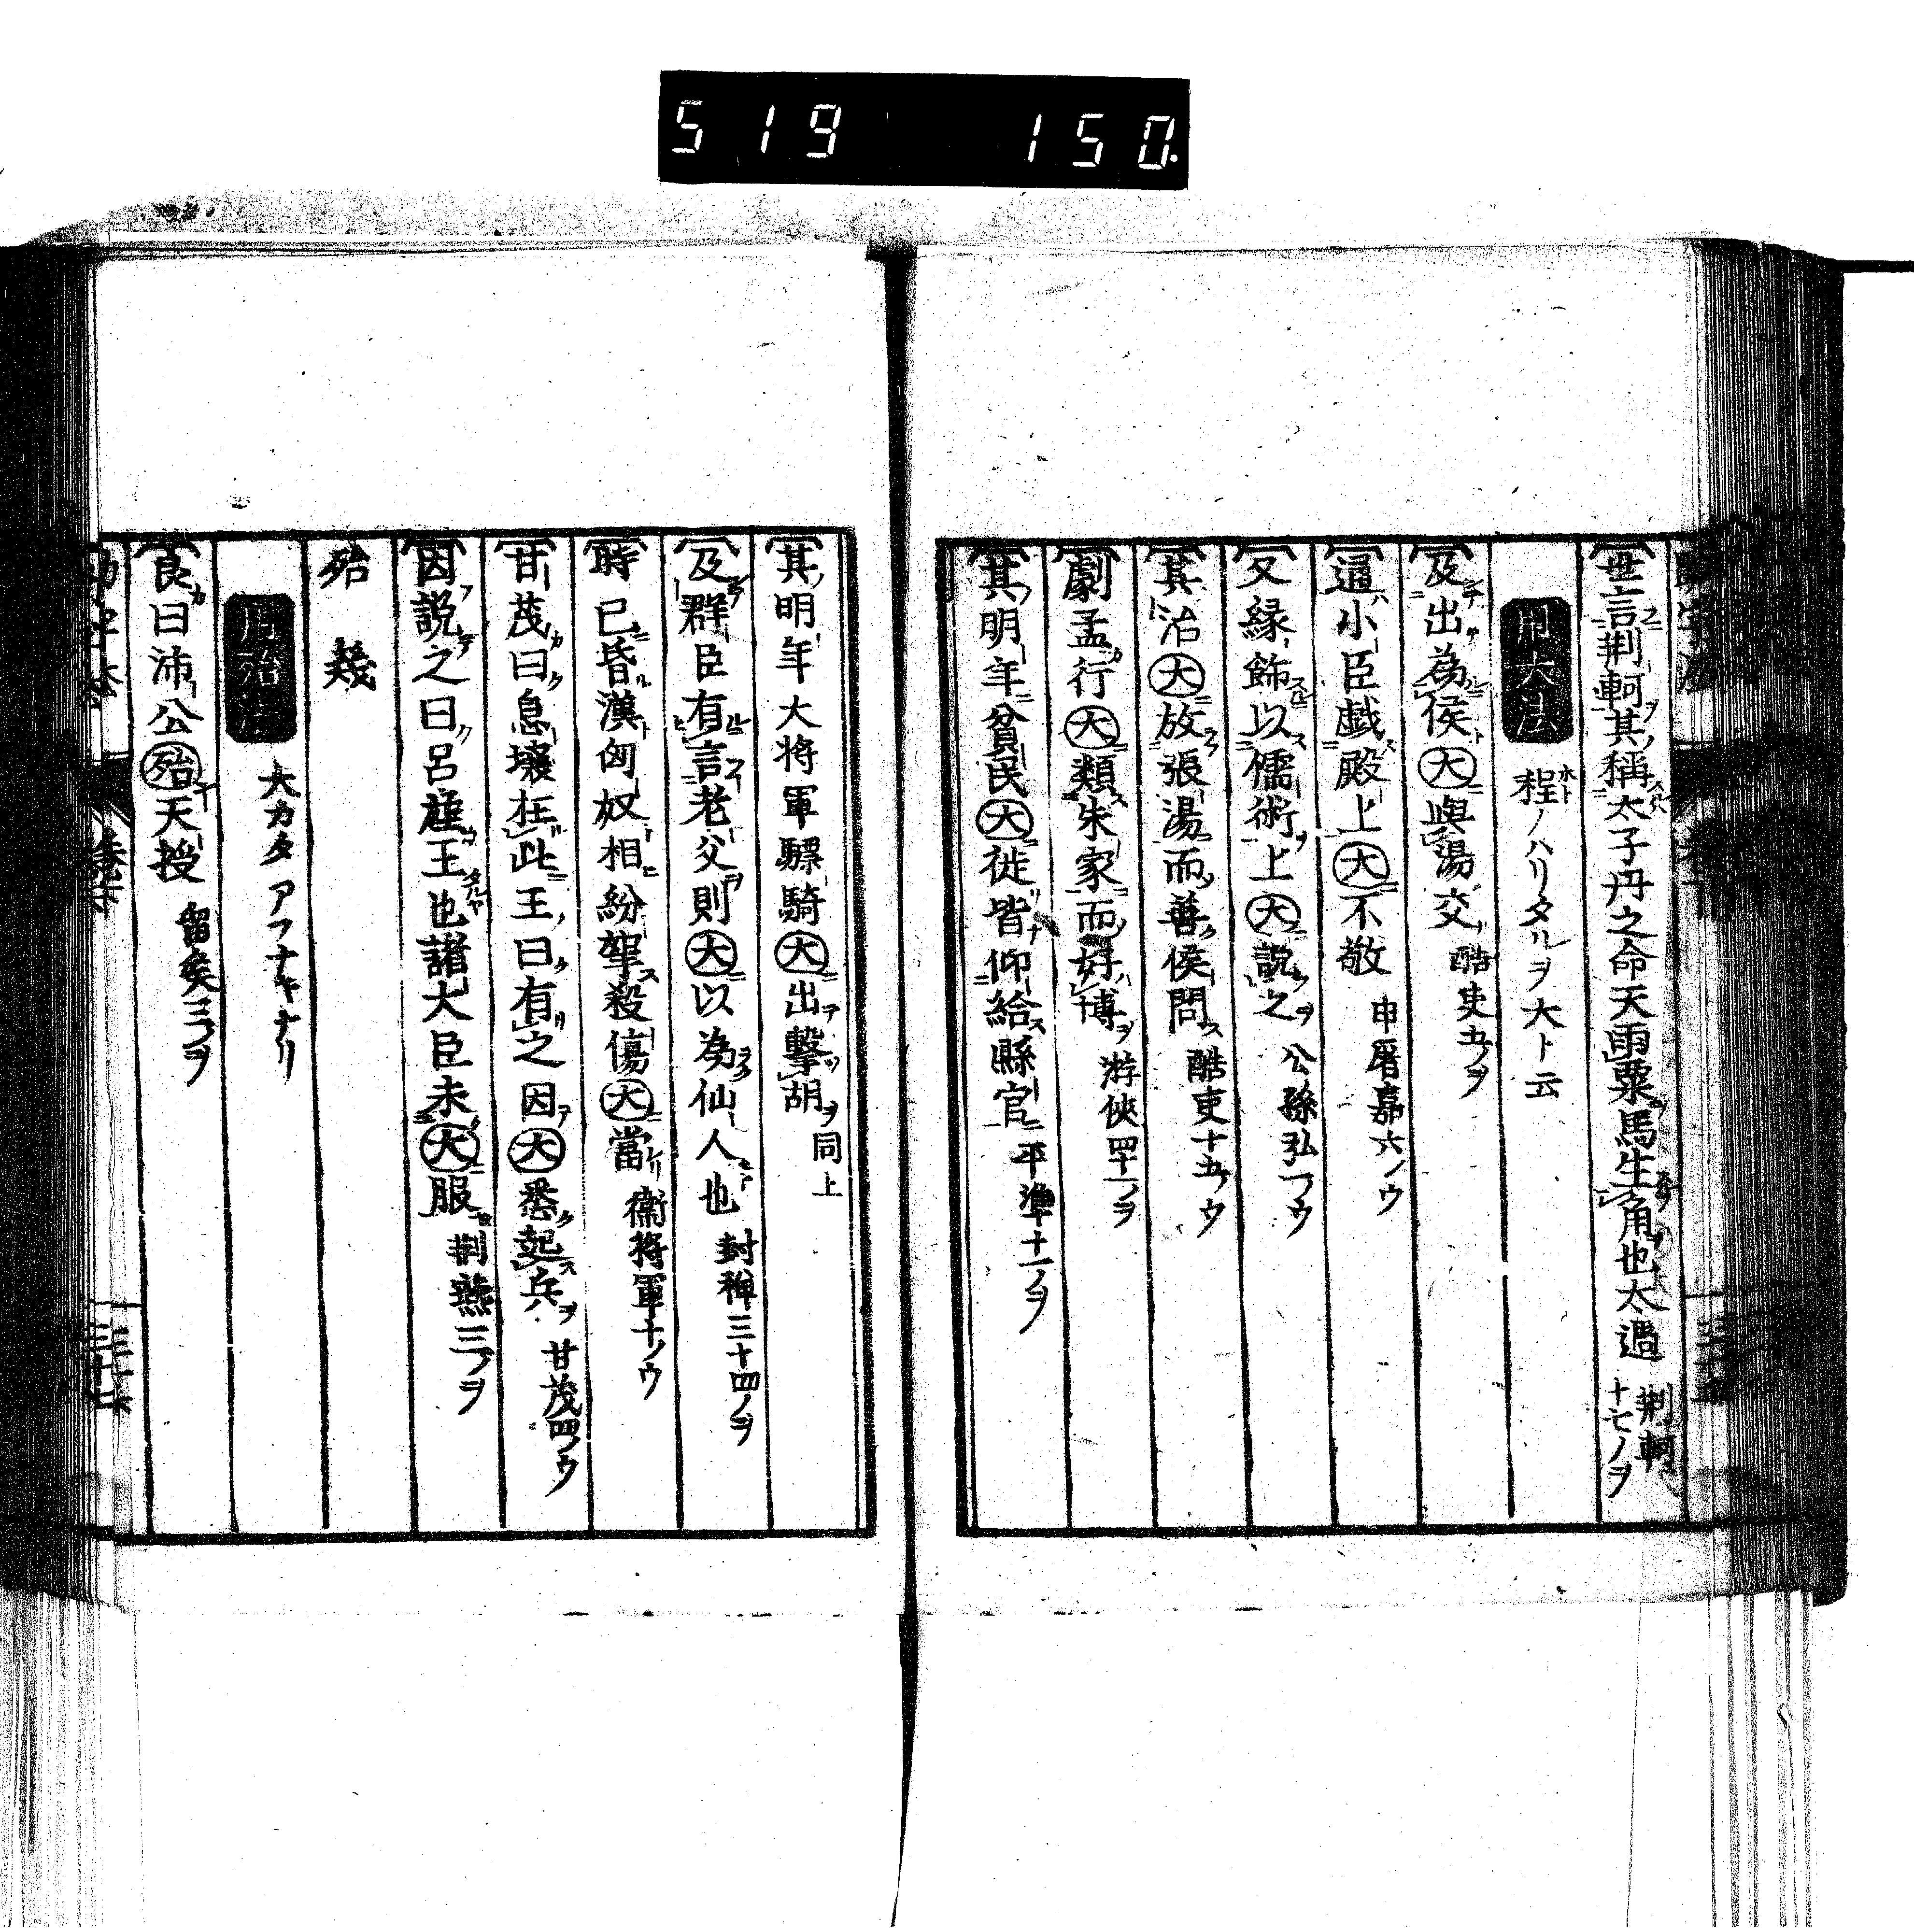 519 150.
世言荊軻其稱太子丹之命天雨粟馬生角也太過 荊軻十七ノヲ
用大法 程ノハリタルヲ大ト云
及出為侯大與湯交 酷吏五ノヲ
通小臣戯殿上大不敬 申屠嘉六ノウ
又縁飾以儒術上大説之 公孫弘一ノウ
其治大放張湯而善侯問 酷吏十五ノウ
劇孟行大類朱家而好博 游侠四十一ノヲ
其明年貧民大徙皆仰給縣官 平準十一ノヲ
其明年大将軍驃騎大出擊胡 同上
及群臣有言老父則大以為仙人也 封禅三十四ノヲ
時已昏漢匈奴相紛挐殺傷大當 衞将軍十ノウ
甘茂曰息壤在此王曰有之因大悉起兵 甘茂四ノウ
因説之曰呂産王也諸大臣未大服 荊燕三ノヲ
殆 幾
用殆法 大カタアフナキナリ
良曰沛公殆天授 留矦三ノヲ